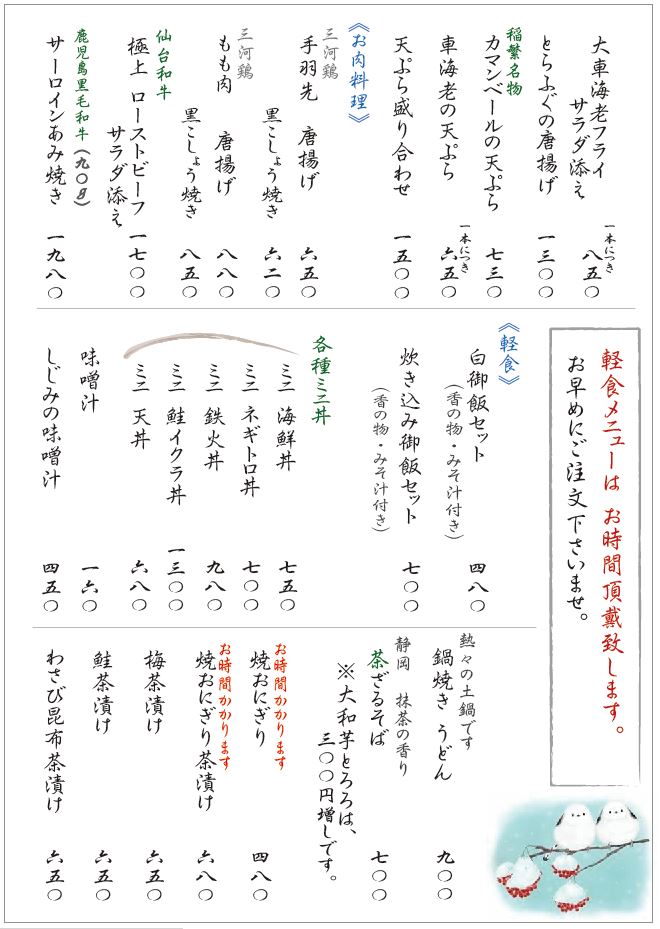 大車海老フライ
サラダ添え
一本につき
八五〇
とらふぐの唐揚げ
一三〇〇
稲繁名物
カマンベールの天ぷら
七三〇
車海老の天ぷら
一本につき
六五〇
天ぷら盛り合わせ
一五〇〇
《お肉料理》
三河鶏
手羽先 唐揚げ
六五〇
黒こしょう焼き
六二〇
三河鶏
もも肉 唐揚げ
八八〇
黒こしょう焼き
八五〇
仙台和牛
極上 ローストビーフ
サラダ添え
一七〇〇
鹿児島黒毛和牛(九〇g)
サーロインあみ焼き
一九八〇
軽食メニューは お時間頂戴致します。
お早めにご注文下さいませ。
《軽食》
白御飯セット
(香の物・みそ汁付き)
四八〇
炊き込み御飯セット
(香の物・みそ汁付き)
七〇〇
各種ミニ丼
ミニ 海鮮丼
七五〇
ミニ ネギトロ丼
七〇〇
ミニ 鉄火丼
九八〇
ミニ 鮭イクラ丼
一三〇〇
ミニ 天丼
六八〇
味噌汁
一六〇
しじみの味噌汁
四五〇
熱々の土鍋です
鍋焼き うどん
九〇〇
静岡 抹茶の香り
茶ざるそば
七〇〇
※大和芋とろろは、
三〇〇円増しです。
お時間かかります
焼おにぎり
四八〇
お時間かかります
焼おにぎり茶漬け
六八〇
梅茶漬け
六五〇
鮭茶漬け
六五〇
わさび昆布茶漬け
六五〇